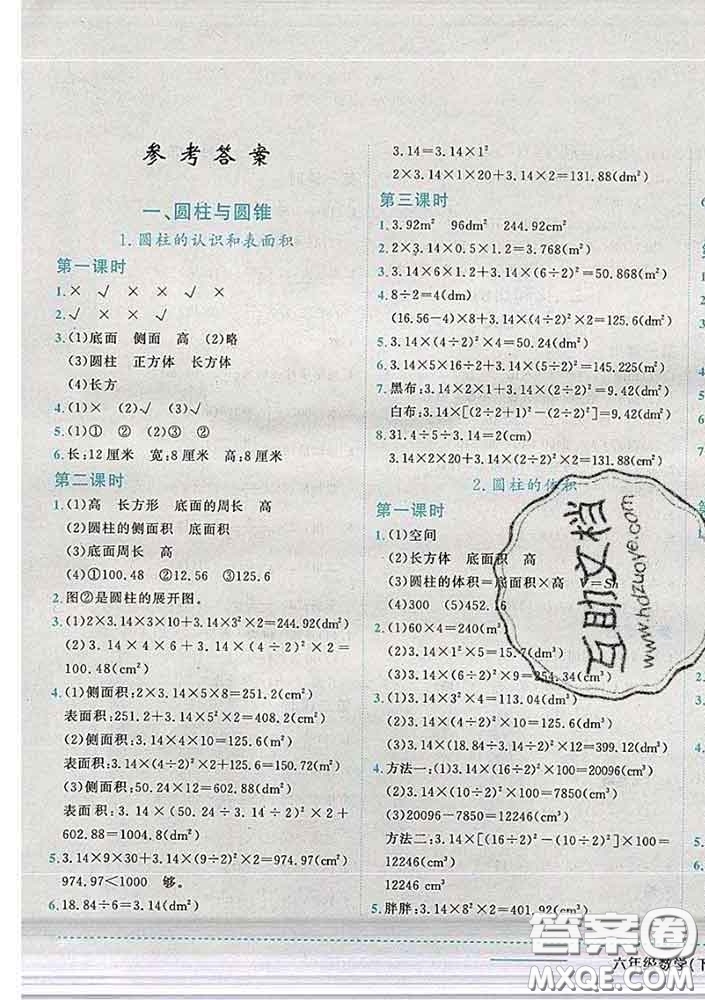 参考答案
一、圆柱与圆锥
1.圆柱的认识和表面积
第一课时
1.× √ × √ ×
2.√ √ × ×
3.(1)底面 侧面 高 (2)略
(3)圆柱 正方体 长方体
(4)长方
4.(1)× (2)√ (3)× (4)√
5.(1)① ② (2)① ②
6.长:12厘米 宽:8厘米 高:8厘米
第二课时
1.(1)高 长方形 底面的周长 高
(2)圆柱的侧面积 底面积
(3)底面周长 高
(4)①100.48 ②12.56 ③125.6
2.图②是圆柱的展开图。
3.(1)2×3.14×3×10+3.14×3²×2=244.92(dm²)
(2)3.14×4×6+3.14×(4÷2)²×2=100.48(dm²)
4.(1)侧面积:2×3.14×5×8=251.2(cm²)
表面积:251.2+3.14×5²×2=408.2(cm²)
(2)侧面积:3.14×4×10=125.6(cm²)
表面积:3.14×(4÷2)²×2+125.6=150.72(cm²)
(3)侧面积:50.24×12=602.88(dm²)
表面积:3.14×(50.24÷3.14÷2)²×2+
602.88=1004.8(dm²)
5.3.14×9×30+3.14×(9÷2)²×2=974.97(cm²)
974.97<1000 够。
6.18.84÷6=3.14(dm)
3.14=3.14×1²
2×3.14×1×20+3.14×1²×2=131.88(dm²)
第三课时
1.3.92m² 96dm² 244.92(cm²)
2.2×3.14×0.5×1.2=3.768(m²)
3.3.14×6×1.2+3.14×(6÷2)²=50.868(m²)
4.8÷2=4(dm)
(16.56-4)×8+3.14×(4÷2)²×2=125.6(dm²)
5.3.14×(4÷2)²×4=50.24(dm²)
6.3.14×5×16÷2+3.14×(5÷2)²=145.225(m²)
7.黑布:3.14×2×1+3.14×(2÷2)²=9.42(dm²)
白布:3.14×[(2÷2+1)²-(2÷2)²]=9.42(dm²)
8.31.4÷5÷3.14=2(cm)
3.14×2×20+3.14×(2÷2)²×2=131.88(cm²)
2.圆柱的体积
第一课时
1.(1)空间
(2)长方体 底面积 高
(3)圆柱的体积=底面积×高 V=Sh
(4)300 (5)452.16
2.(1)60×4=240(m³)
(2)3.14×1²×5=15.7(dm³)
(3)3.14×(6÷2)²×9=254.34(cm³)
3.(1)3.14×3²×4=113.04(dm³)
(2)3.14×(4÷2)²×10=125.6(dm³)
(3)3.14×(18.84÷3.14÷2)²×12=399.12(dm³)
4.方法一:(1)3.14×(16÷2)²×100=20096(cm³)
(2)3.14×(10÷2)²×100=7850(cm³)
(3)20096-7850=12246(cm³)
方法二:3.14×[(16÷2)²-(10÷2)²]×100=
12246(cm³)
12246cm³
5.胖胖:3.14×8²×2=401.92(cm³)
六年级数学(下
互助文档
www.hdzuoye.com
答案圈
MXQE.COM